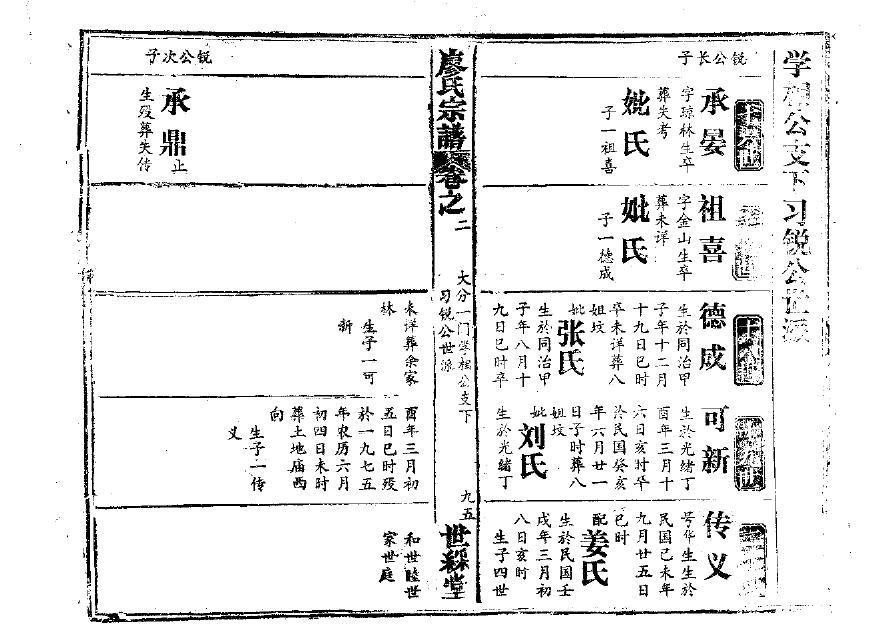 学相公支下习锐公世派
锐公长子
承晏
字琼林生卒
葬失考
妣氏
子一祖喜
祖喜
字金山生卒
葬未详
妣氏
子一德成
德成
生於同治甲
子年十二月
十九日巳时
卒未详葬八
姐坟
妣张氏
生於同治甲
子年八月十
九日巳时卒
可新
生於光绪丁
酉年三月十
六日亥时卒
於民国癸亥
年六月廿一
日子时葬八
姐坟
妣刘氏
生於光绪丁
传义
号华生生於
民国己未年
九月廿五日
巳时
配姜氏
生於民国壬
戌年三月初
八日亥时
生子四世
廖氏宗谱
卷之二
大分一门学相公支下
习锐公世派
九五
世綵堂
锐公次子
承鼎止
生殁葬失传
未详葬余家
林
生子一可
新
酉年三月初
五日巳时殁
於一九七五
年农历六月
初四日未时
葬土地庙西
向
生子一传
义
和世睦世
家世庭